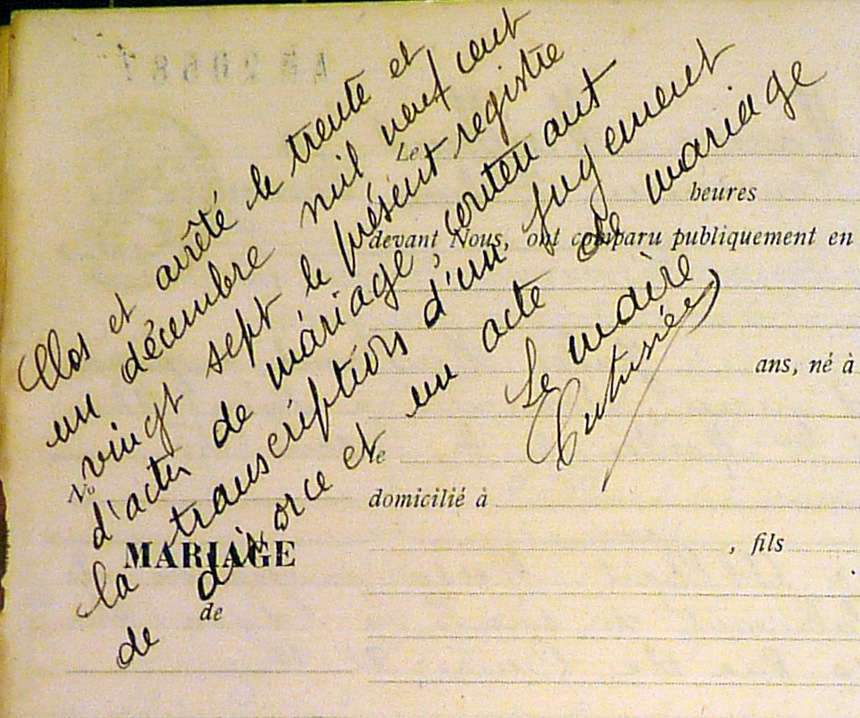 Clos et arrêté le trente et
un décembre mil neuf cent
vingt sept le présent registre
d'actes de mariage, contenant
la transcription d'un jugement
de divorce et un acte de mariage
Le maire
Le
heures
devant Nous, ont comparu publiquement en
ans, né à
le
domicilié à
, fils
No
MARIAGE
de